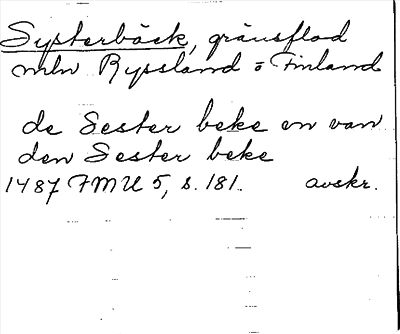 Systerbäck, gränsflod
mln Ryssland o Finland
de Sester beke en van
den Sester beke
1487 FMU 5, s. 181. avskr.